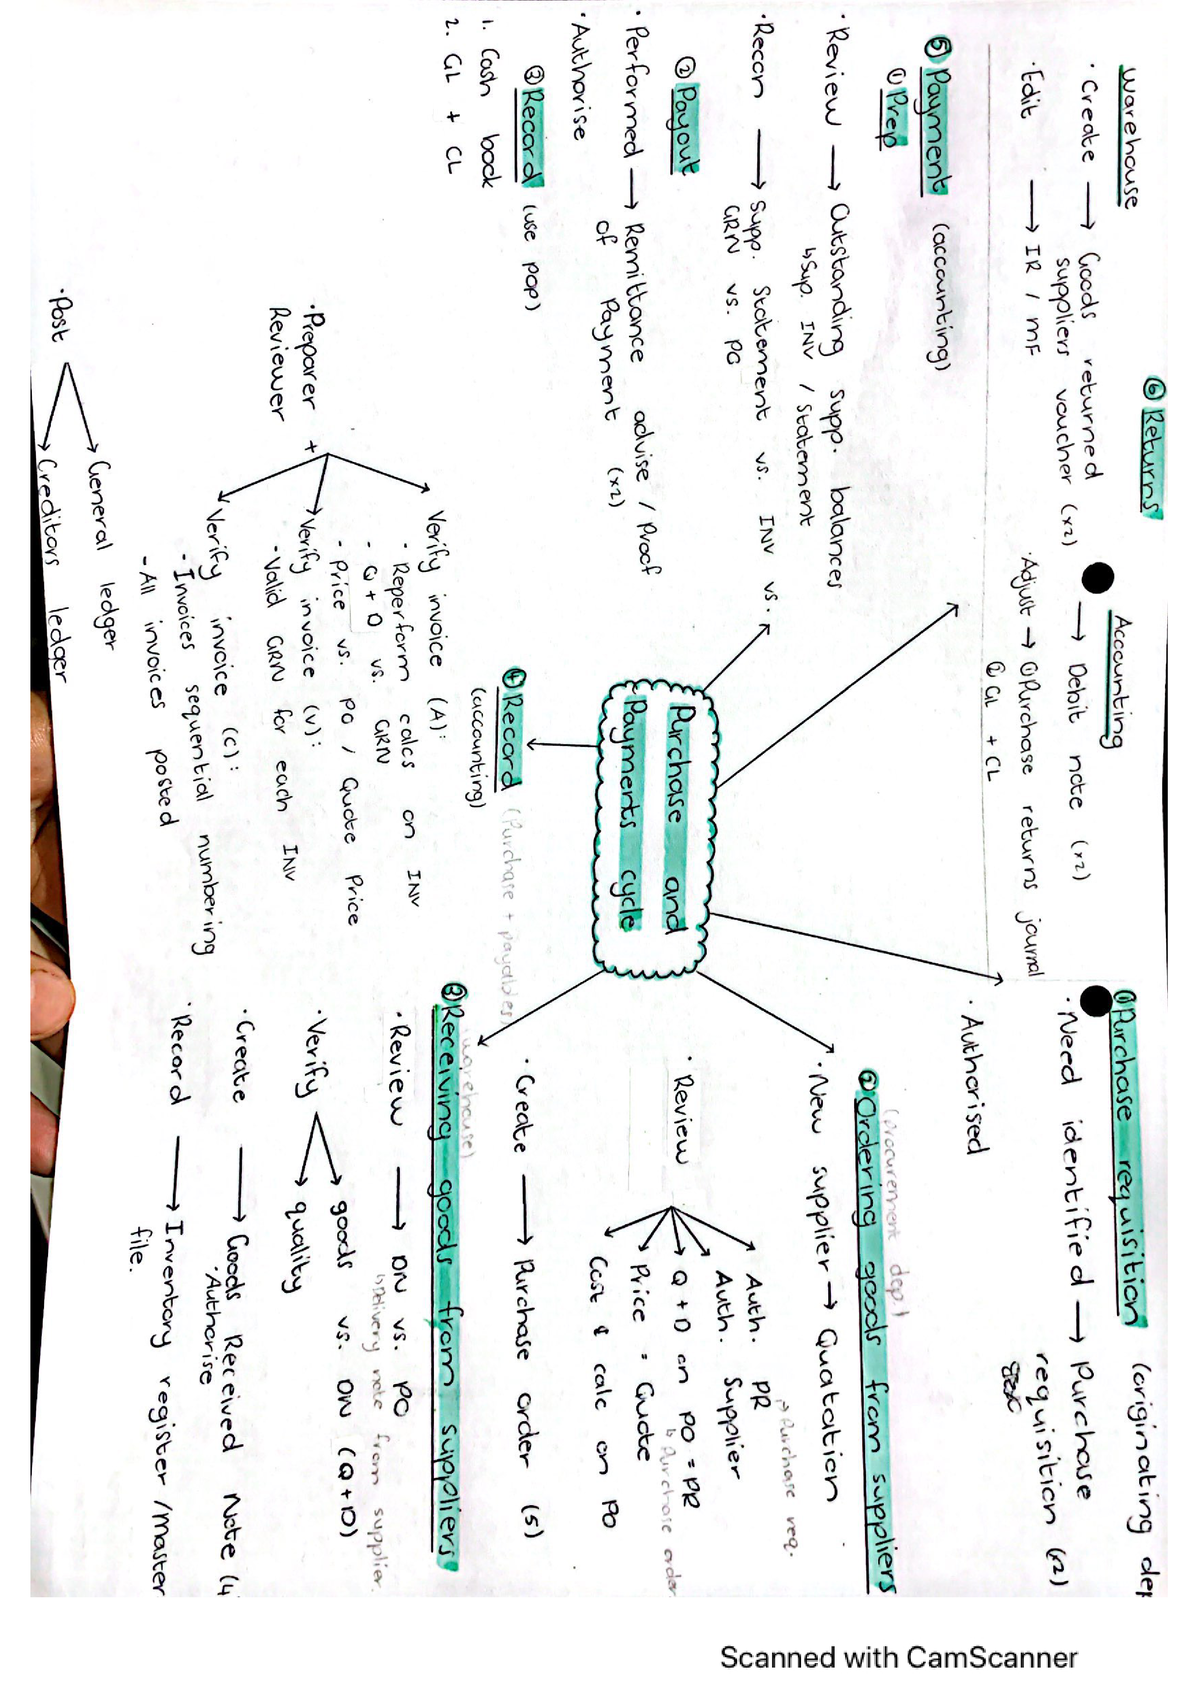 ⑥ Returns
Warehouse
· Create → Goods returned
suppliers voucher (x2)
· Edit → IR / MF
Accounting
→ Debit note (x2)
· Adjust → ① Purchase returns journal
② GL + CL
⑤ Payment (accounting)
① Prep
· Review → Outstanding supp. balances
↳ Sup. INV / Statement
· Recon → Supp. Statement vs. INV vs.
GRN vs. PO
② Payout
· Performed → Remittance advise / Proof
of Payment (x2)
· Authorise
③ Record (use POP)
1. Cash book
2. GL + CL
Purchase and
Payments cycle
① Purchase requisition (originating dep
· Need identified → Purchase
requisition (x2)
· Authorised
(procurement dep)
② Ordering goods from suppliers
· New supplier → Quotation
· Review
Auth. PR
↳ Purchase req.
Auth. Supplier
Q + D on PO = PR
↳ Purchase order
Price = Quote
Cast & calc on PO
· Create → Purchase order (5)
(warehouse)
③ Receiving goods from suppliers
· Review → DN vs. PO
↳ Delivery note from supplier.
· Verify → goods vs. DN (Q+D)
→ quality
· Create → Goods Received Note (4
· Authorise
· Record → Inventory register / master
file.
④ Record (Purchase + payables)
(accounting)
· Preparer +
Reviewer
Verify invoice (A):
· Reperform calcs on INV
· Q + D vs. GRN
· Price vs. PO / Quote Price
Verify invoice (V):
- Valid GRN for each INV
Verify invoice (C):
- Invoices sequential numbering
- All invoices posted
· Post → General ledger
→ Creditors ledger
Scanned with CamScanner